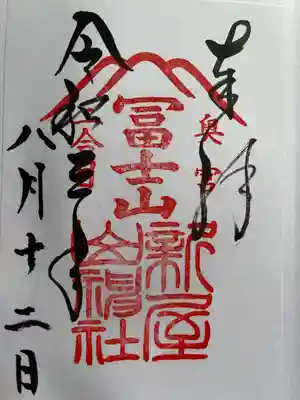 奉拝
奥宮
冨士山
新屋
山神社
令和三年
八月十二日